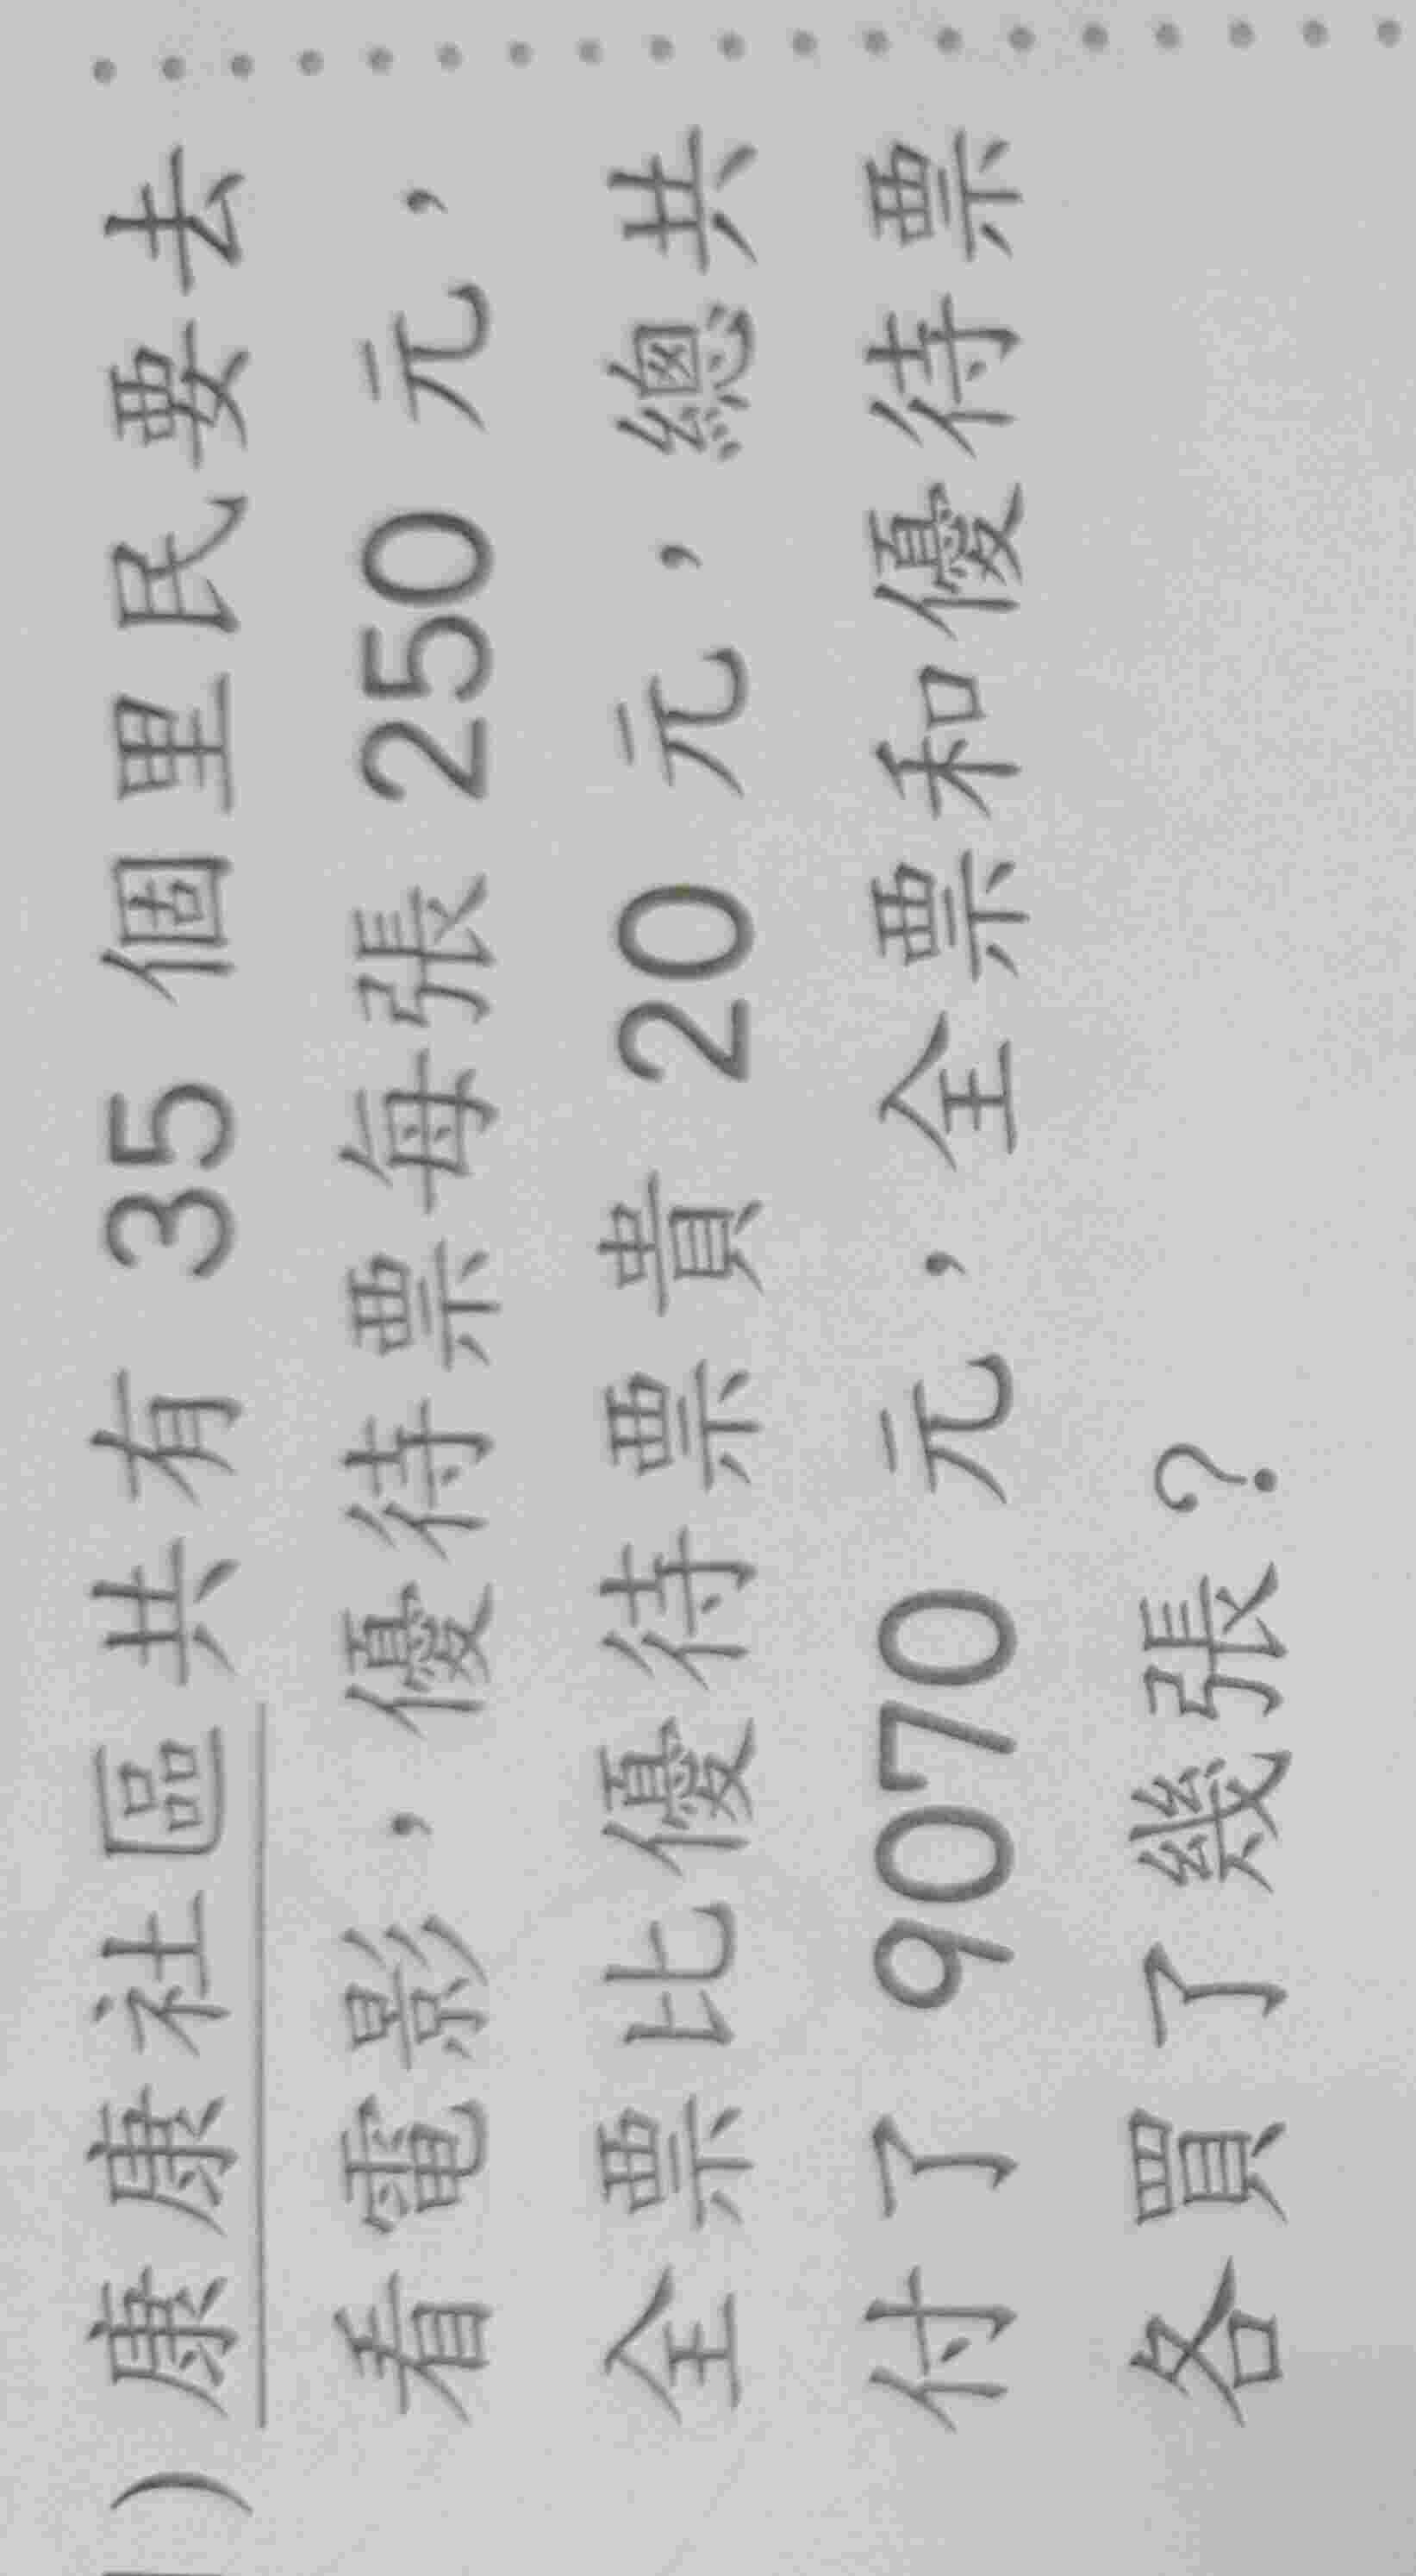 ) 康康社區共有 35 個里民要去
看電影，優待票每張 250 元，
全票比優待票貴 20 元，總共
付了 9070 元，全票和優待票
各買了幾張？